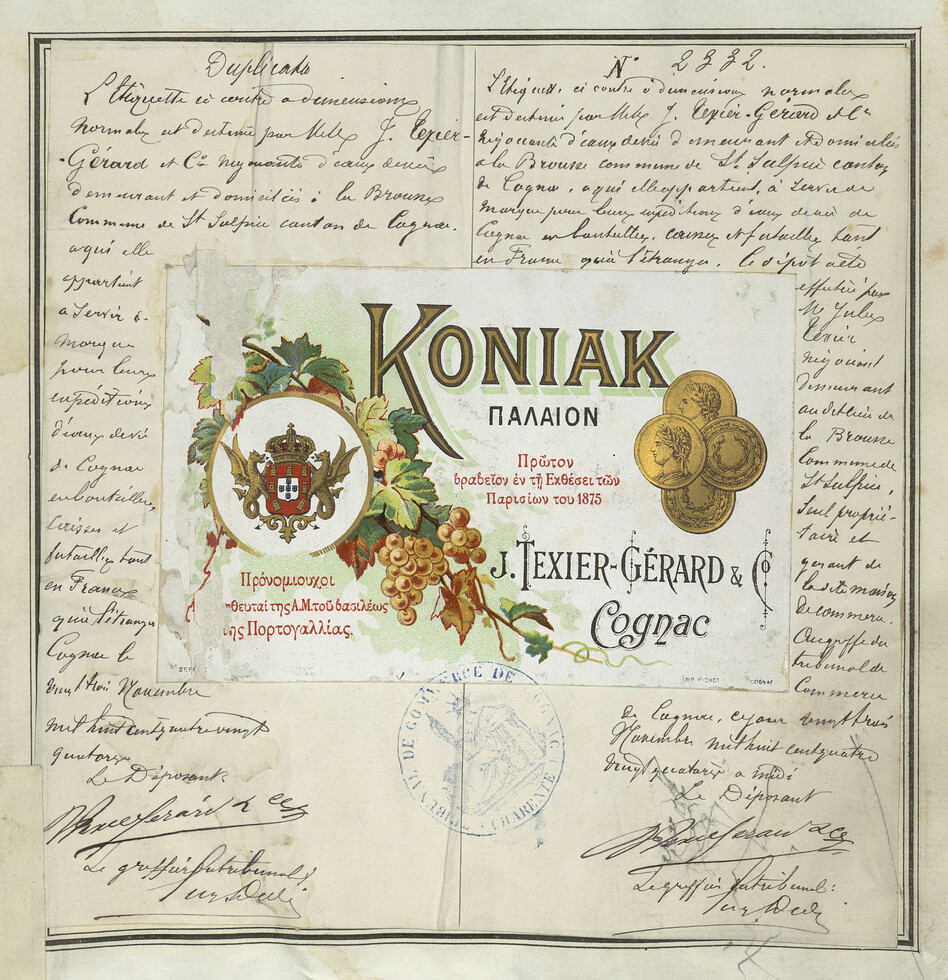 Duplicata
L'étiquette ci contre a dimensions
normales est destinée par MM. J. Texier-
-Gérard et Cie négociants d'eaux de vie
demeurant et domiciliés à la Brousse
Commune de St Sulpice canton de Cognac.
a qui elle
appartient
a servir de
marque
pour leurs
expéditions
d'eaux de vie
de Cognac
en bouteilles,
Caisses et
futailles tant
en France
qu'à l'étranger
Cognac le
vingt trois Novembre
mil huit cent quatre vingt
quatorze
Le Déposant
Texier Gérard & Cie
Le greffier du tribunal
No 2332.
L'étiquette ci contre à dimensions normales
est destinée par MM. J. Texier-Gérard et Cie
négociants d'eaux de vie demeurant et domiciliés
a la Brousse commune de St. Sulpice canton
de Cognac, a qui elle appartient, à servir de
marque pour leurs expéditions d'eaux de vie de
Cognac en bouteilles, caisses et futailles tant
en France qu'à l'étranger. Le dépôt a été
effectué par
Mr Jules
Texier
négociant
demeurant
au dit lieu de
la Brousse
Commune de
St Sulpice,
Seul proprié-
taire et
gérant de
la dite maison
de commerce.
Au greffe du
tribunal de
Commerce
de Cognac, ce jour vingt trois
Novembre mil huit cent quatre
vingt quatorze a midi
Le Déposant
Texier Gérard & Cie
Le greffier du tribunal:
KONIAK
ΠΑΛΑΙΟΝ
Πρῶτον
βραβεῖον ἐν τῇ Εκθέσει τῶν
Παρισίων του 1875
J. TEXIER-GÉRARD & Co
Cognac
Πρόνομιουχοι
ηθευταί της Α.Μ. τοῦ βασιλέως
της Πορτογαλλίας.
COGNAC
TRIBUNAL DE COMMERCE DE COGNAC
(CHARENTE)